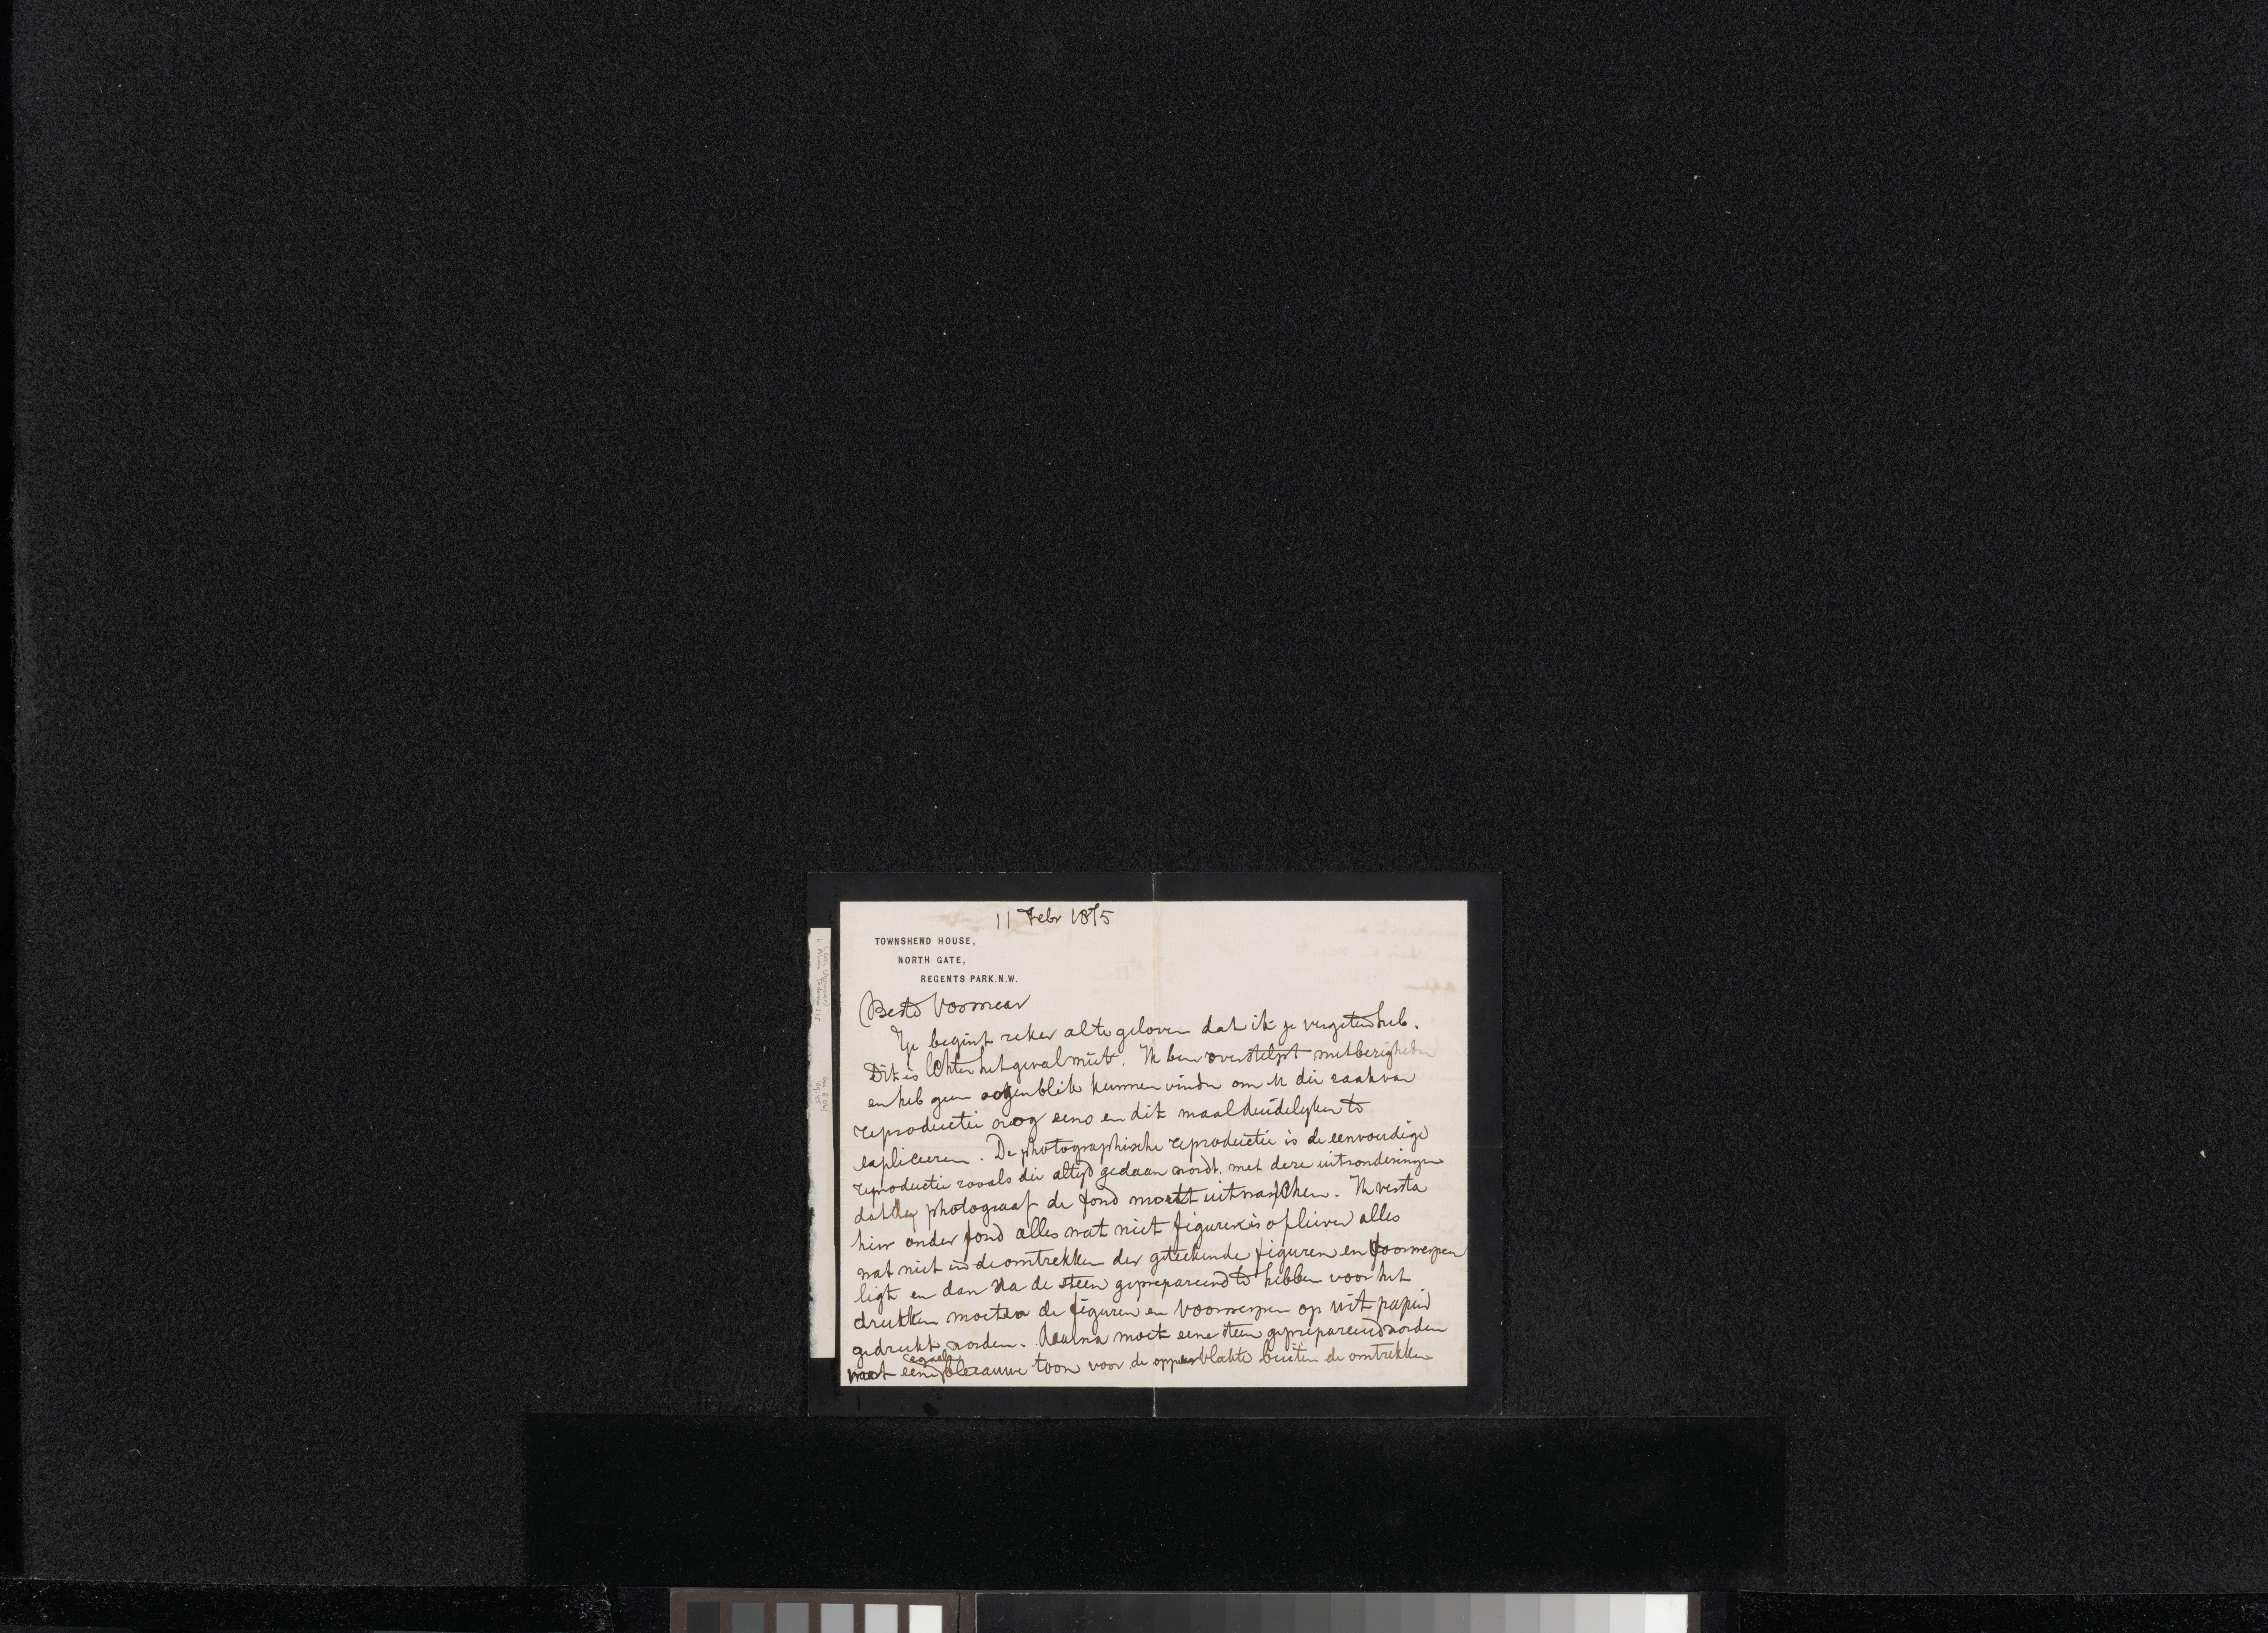 11 Febr 1875
TOWNSHEND HOUSE,
NORTH GATE,
REGENTS PARK.N.W.
Beste Vosmear
Je begint zeker al te geloven dat ik je vergeten heb.
Dit is echter het geval niet. Ik ben overstelpt met bezigheden
en heb geen oogenblik kunnen vinden om U die zaak van
reproductie nog eens en dit maal duidelyker te
expliceeren. De photographische reproductie is de eenvoudige
reproductie zooals die altyd gedaan wordt, met deze uitzonderingen
dat de photograaf de fond moet uitwasschen. Ik versta
hier onder fond alles wat niet figuren is of liever alles
wat niet in de omtrekken der geteekende figuren en voorwerpen
ligt en dan na de steen geprepareerd te hebben voor het
drukken moeten de figuren en voorwerpen op wit papier
gedrukt worden. Daarna moet eene steen geprepareerd worden
met eene egaale blaauwe toon voor de oppervlakte buiten de omtrekken